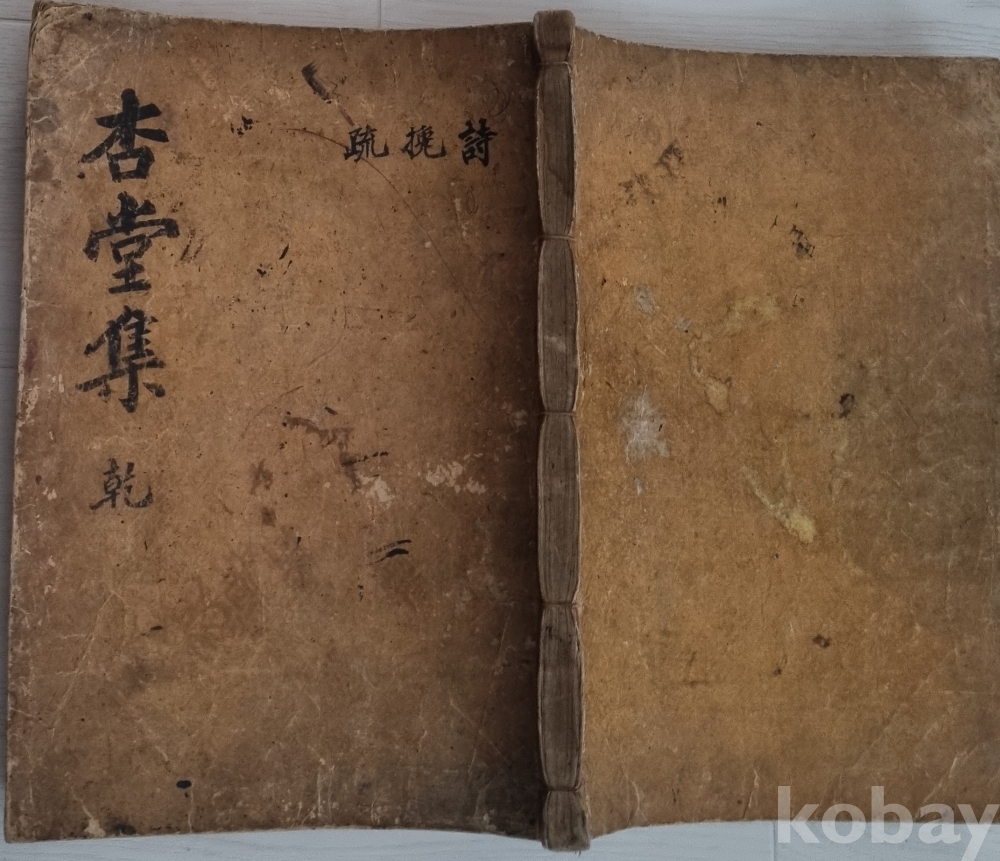 杏堂集 乾
詩 挽 疏
kobay